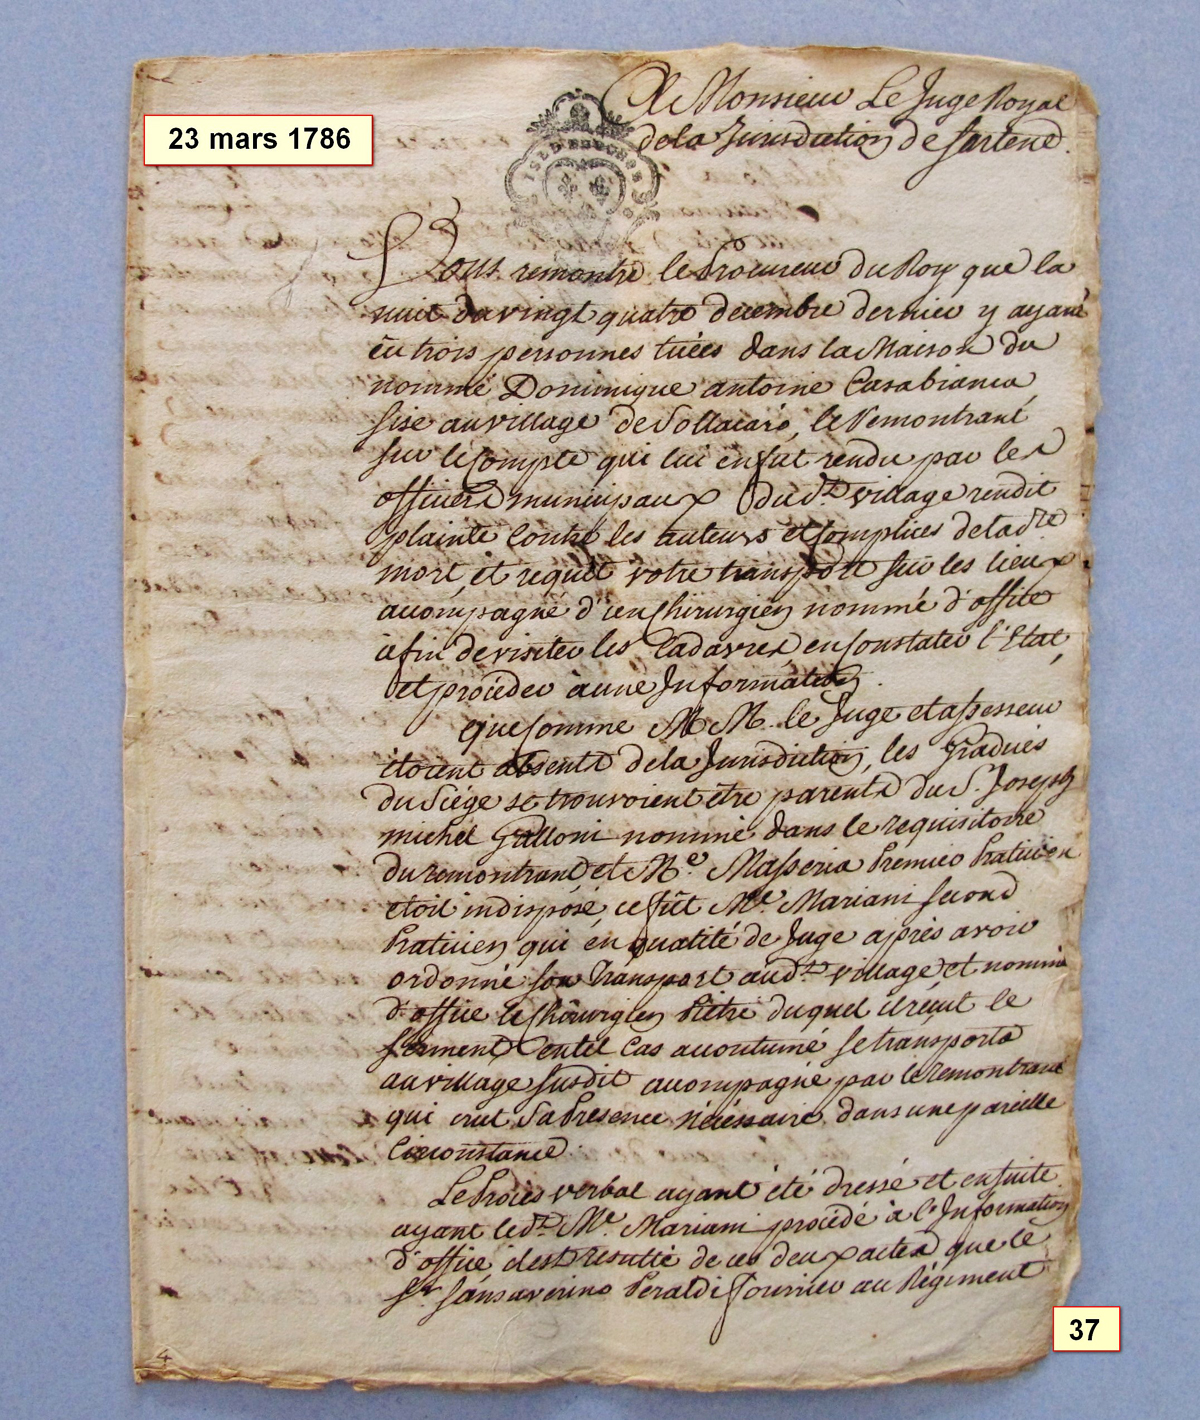 23 mars 1786
A Monsieur Le Juge Royal
dela Jurisdiction de Sartene.
ISLE DE CORSE
Vous remontre le Procureur du Roy que la
nuit du vingt quatre decembre dernier y ayant
eu trois personnes tuées dans la Maison du
nommé Dominique antoine Casabianca
sise au village de Sollacaro, le Remontrant
sur le Compte qui lui en fut rendu par les
officiers municipaux dud.t village rendit
plainte Contre les auteurs et Complices de lad.te
mort, et requit votre transport sur les lieux
acompagné d'un Chirurgien nommé d'office
àfin de visiter les Cadavres, en Constater l'Etat,
et procéder à une Information.
que Comme M M. le Juge et assesseur
étoient absents dela Jurisdiction, les Gradués
du Siége se trouvoient être parents du S.r Joseph
michel Galloni nommé dans le requisitoire
du remontrant, et M.e Masseria Premier Praticien
etoit indisposé, ce fût M.e Mariani second
Praticien qui en qualité de Juge après avoir
ordonné son Transport aud.t village et nommé
d'office le Chirurgien Piètri duquel il reçut le
serment en tel Cas acoutumé se transporta
au village susdit acompagné par le remontrant
qui crut Sa Presence nécéssaire dans une pareille
Circonstance.
Le Procès verbal ayant été dressé et ensuite
ayant led.t M.e Mariani procédé à l'Information
d'office, il est resulté de ces deux actes que le
S.r Sansaverino Peraldi fourrier au Régiment
4
37